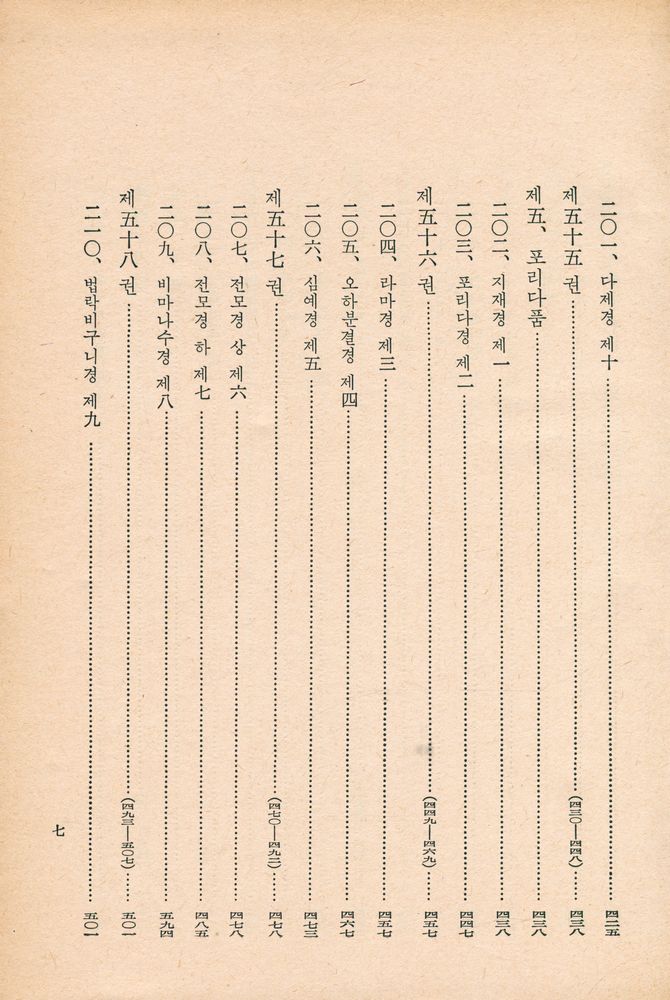 二〇一、다제경 제十 四二五
제五十五권 (四三〇—四四八) 四三八
제五、포리다품 四三八
二〇二、지재경 제一 四三八
二〇三、포리다경 제二 四四七
제五十六권 (四四九—四六九) 四五七
二〇四、라마경 제三 四五七
二〇五、오하분결경 제四 四六七
二〇六、심예경 제五 四七三
제五十七권 (四七〇—四九二) 四七八
二〇七、전모경 상 제六 四七八
二〇八、전모경 하 제七 四八五
二〇九、비마나수경 제八 五九四
제五十八권 (四九三—五〇七) 五〇一
二一〇、법락비구니경 제九 五〇一
七